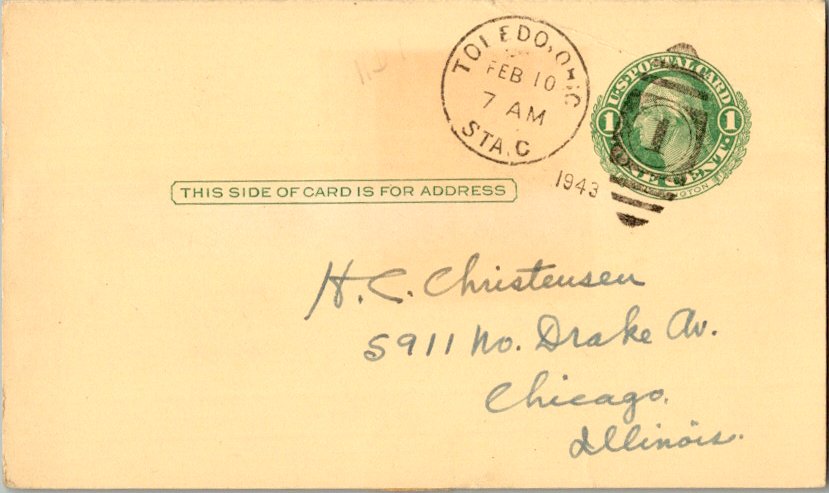 TOLEDO, OHIO
FEB 10
7 AM
STA. C
1943
U.S. POSTAL CARD
1 1
1
ONE CENT
THIS SIDE OF CARD IS FOR ADDRESS
H. C. Christensen
5911 No. Drake Av.
Chicago,
Illinois.